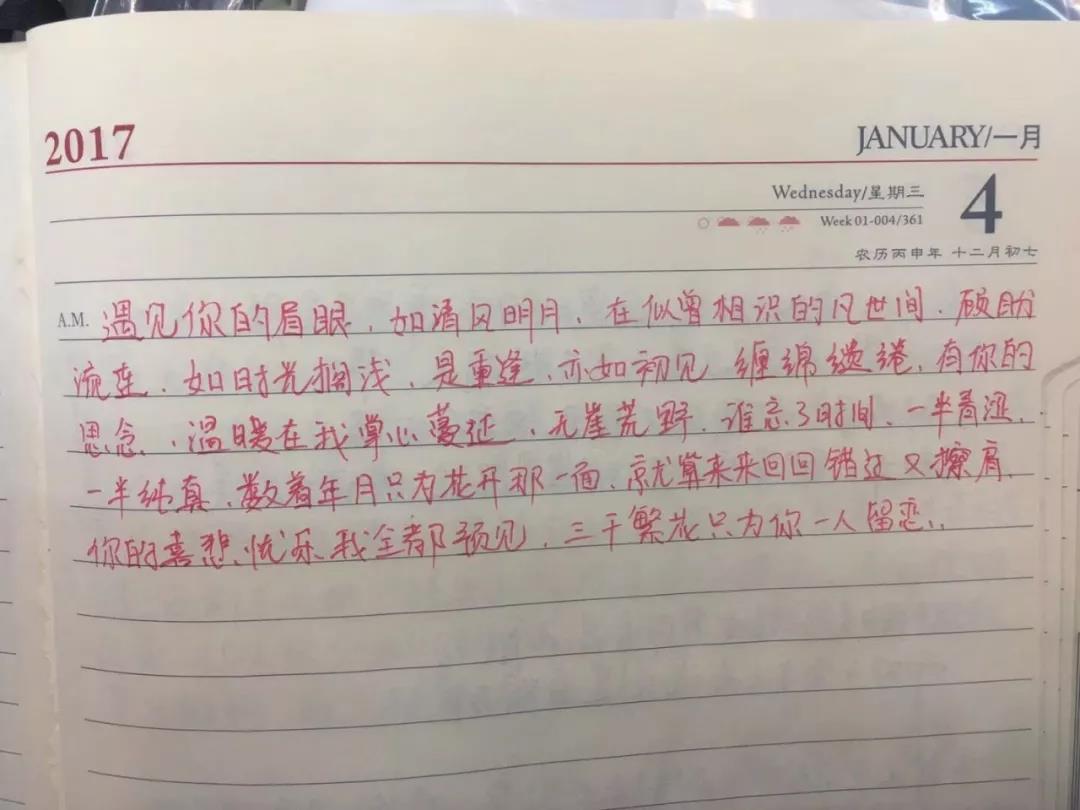 2017
JANUARY/一月
Wednesday/星期三
4
Week 01-004/361
农历丙申年 十二月初七
A.M. 遇见你的眉眼、如清风明月、在似曾相识的凡世间、顾盼
流连、如时光搁浅、是重逢、亦如初见 缠绵缱绻、有你的
思念、温暖在我掌心蔓延、无崖荒野、谁忘了时间、一半青涩、
一半纯真、数着年月只为花开那一面、就算来来回回错过又擦肩、
你的喜怒忧乐我全都预见、三千繁花只为你一人留恋、、